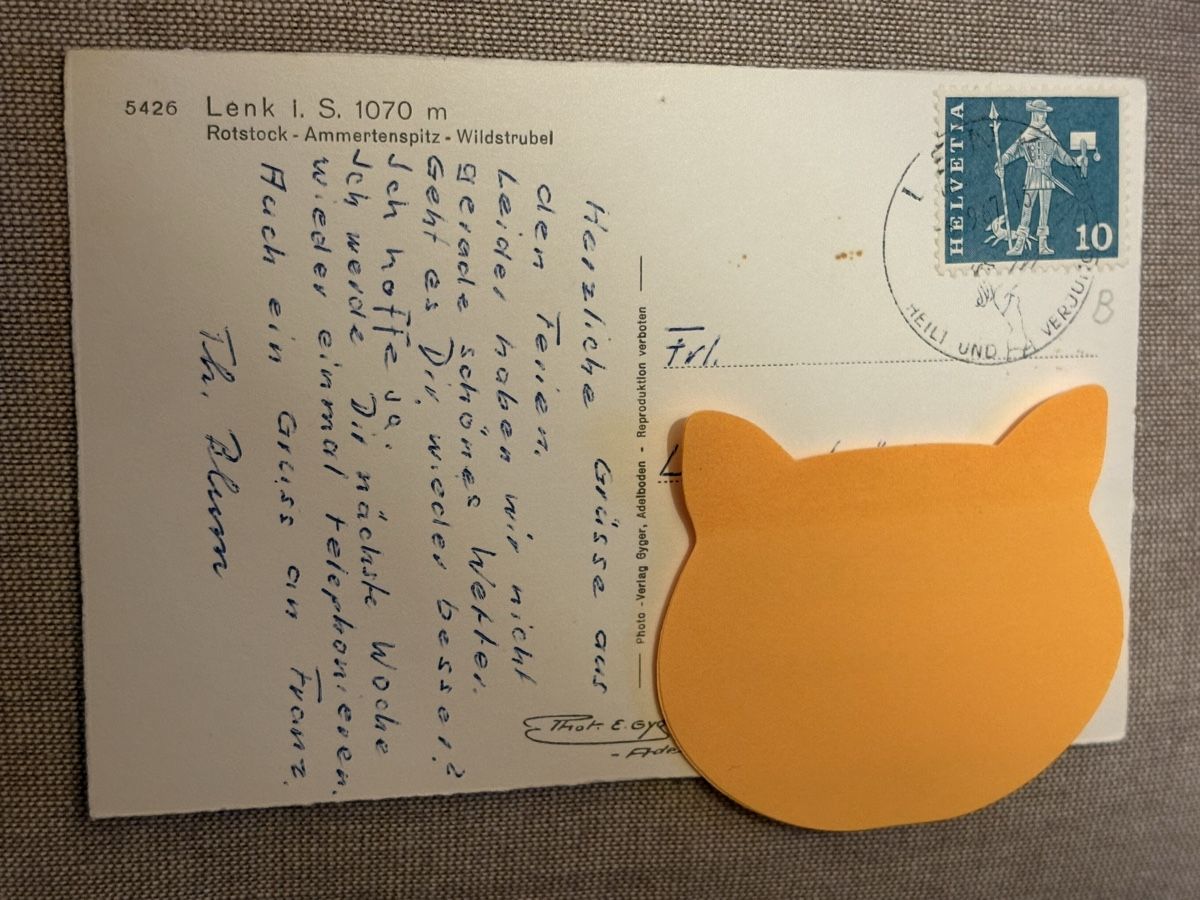 5426 Lenk i. S. 1070 m
Rotstock - Ammertenspitz - Wildstrubel
Herzliche Grüsse aus
den Ferien.
Leider haben wir nicht
gerade schönes Wetter.
Geht es Dir wieder besser?
Ich hoffe ja.
Ich werde Dir nächste Woche
wieder einmal telephonieren.
Auch ein Gruss an Franz.
Th. Blum
Photo-Verlag Gyger, Adelboden - Reproduktion verboten
Phot. E. Gyg
- Ade
HELVETIA
10
HEILT UND VERJÜNG
B
Frl.